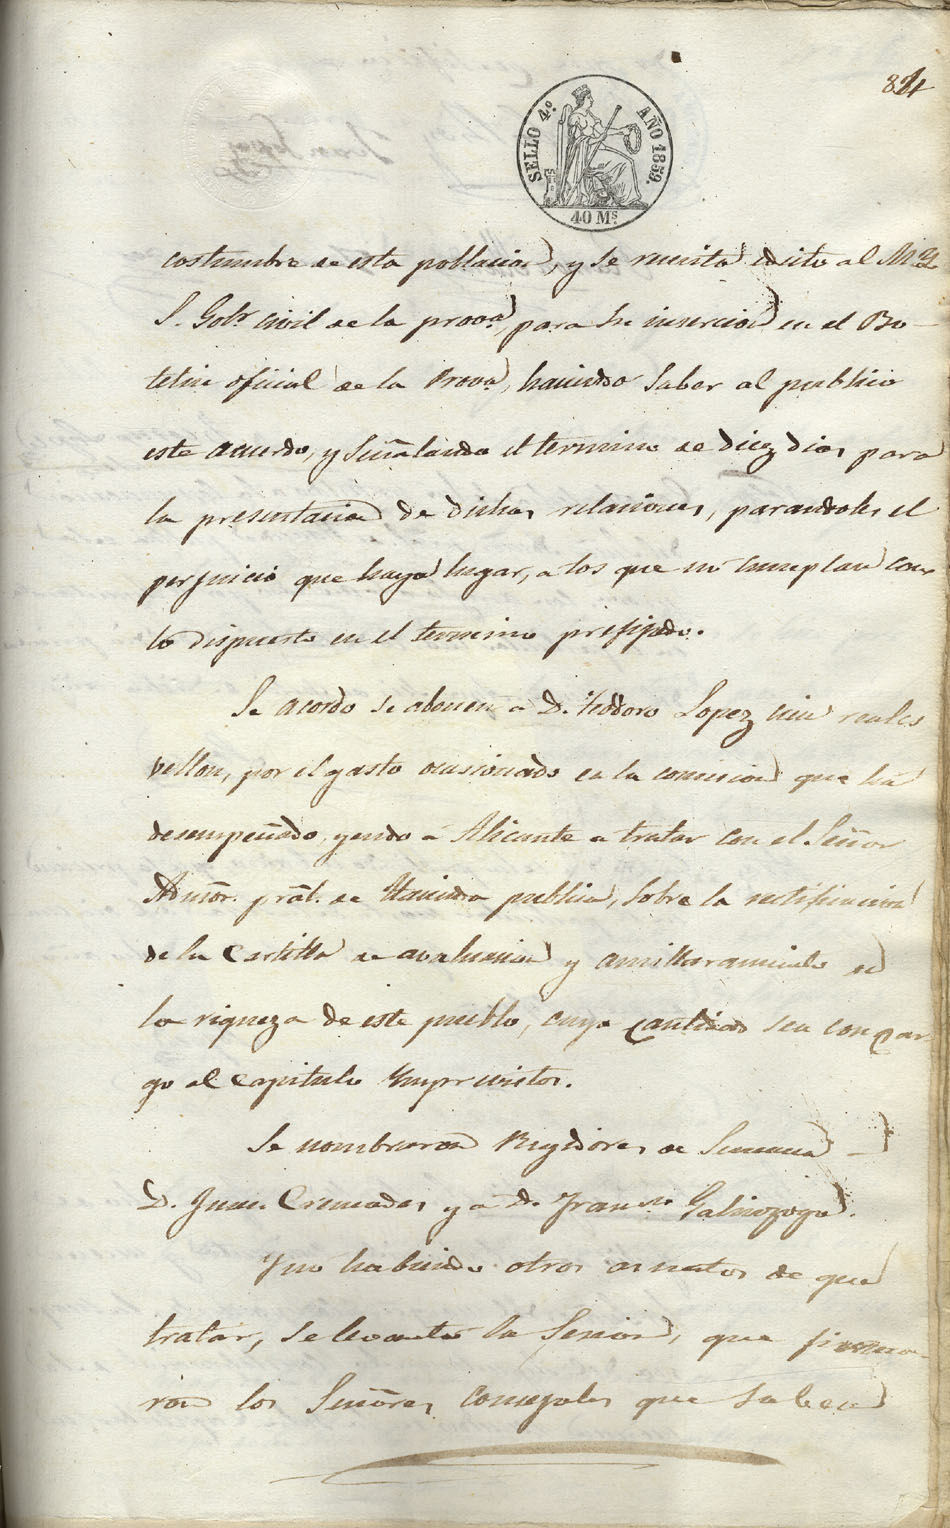 84
SELLO 4º AÑO 1859.
40 Ms.
costumbre de esta poblacion, y se remita edicto al M. Y.
S. Gobr. civil de la prova, para su insercion en el Bo-
letin oficial de la Prova, haciendo saber al publico
este acuerdo, y señalando el termino de diez dias para
la presentacion de dichas relaciones, parandoles el
perjuicio que haya lugar, a los que no cumplan con
lo dispuesto en el termino prefijado.
Se acordo se abonen a D. Teodoro Lopez cien reales
vellon, por el gasto ocasionado en la comision que ha
desempeñado, yendo a Alicante a tratar con el Señor
Admor. pral. de Hacienda publica, sobre la rectificacion
de la Cartilla de avaluacion y amillaramiento de
la riqueza de este pueblo, cuya cantidad sea con car
go al Capitulo Ymprevistos.
Se nombraron Regidores de Semana -
D. Juan Cremades y a D. Franco Galinzoga.
Y no habiendo otros asuntos de que
tratar, se levanto la Sesion, que firma-
ron los Señores concejales que saben